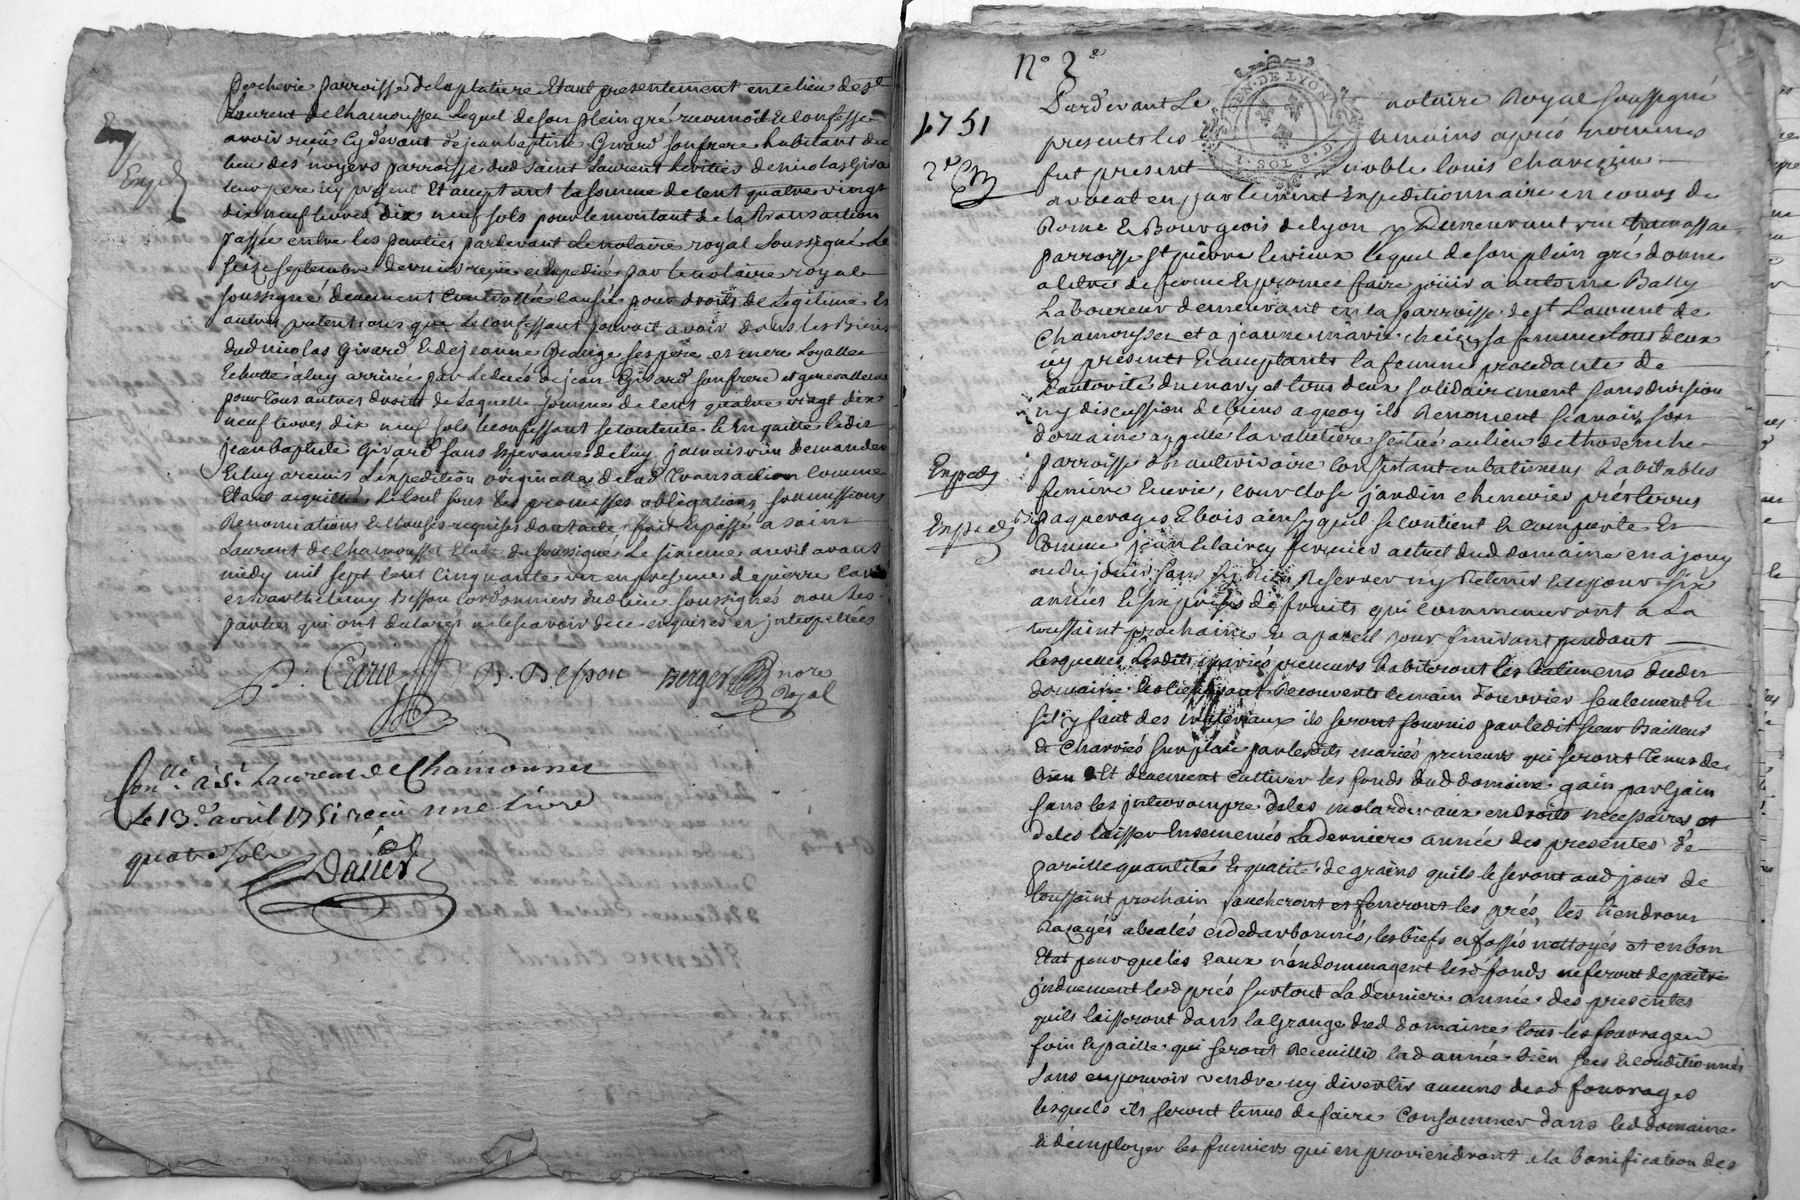 parroisse de la platiere Etant presentement en ce lieu de st
Laurent de Chamousset Lequel de son plein gré reconnoit & confesse
avoir reçu cy devant de jean baptiste Girard son frere habitant du
lieu des noyers parroisse dud saint Laurent heritier de nicolas Girard
leur pere icy present Et acceptant la somme de cent quatre vingt
dix neuf livres dix neuf sols pour le montant de la transaction
passée entre les parties pardevant Le notaire royal soussigné Le
seize septembre dernier reçue & expediée par le notaire royal
soussigné deuement Controllée causée pour droits de Legitime Et
autres pretentions que Le confessant pouvoit avoir dans les Biens
dud nicolas Girard & de jeanne Grange ses pere et mere
Echutte à luy arrivée par le deces de jean Girard son frere et generallement
pour tous autres droits de Laquelle somme de cent quatre vingt dix
neuf livres dix neuf sols le confessant se contente & en quitte ledit
jean baptiste Girard sans Esperance de luy jamais rien demander
Et luy a remis L'expedition originalle de lad Transaction comme
Etant acquittée Le tout sous les promesses obligations soumissions
Renonciations & clauses requises dont acte, fait & passé a saint
Laurent de Chamousset Etude du soussigné Le sixieme avril avant
midy mil sept cent cinquante un en presence de pierre
et barthelemy Besson Cordonniers dud lieu soussignés non les
parties qui ont declaré ne le sçavoir de ce enquises et interpellées
B. Besson Berger nore
Royal
Conllé. à St. Laurent de Chamousset
Le 13e. avril 1751 reçu une livre
quatre sols
N° 3e
GEN. DE LYON
1. SOL 8. D.
1751
Pardevant Le notaire Royal soussigné
presents les temoins après nommés
fut present noble louis
avocat en parlement Expeditionnaire en cour de
Rome & Bourgeois de lyon y Demeurant rue tramassac
parroisse st pierre le vieux lequel de son plein gré donne
a titre de ferme & promet faire jouir a antoine Bally
Laboureur demeurant en la parroisse de st Laurent de
Chamousset et a jeanne marie sa femme tous deux
icy présents & acceptants la femme procedante de
L'autorité du mary et tous deux solidairement sans division
ny discussion de biens a quoy ils Renoncent sçavoir son
domaine appellé la valletiere scitué au lieu de
parroisse de consistant en batimens habitables
feniere Ecurie, cour close jardin chenevier prés terres
paquerages & bois ainsy qu'il se contient & comporte Et
Comme jean fermier actuel dud domaine en a jouy
ou du jouir sans sy Rien Reserver ny Retenir & ce pour six
années & six prises de fruits qui commenceront a La
toussaint prochaine & a pareil jour finiront pendant
lesquelles Lesdits mariés preneurs habiteront les batimens dudit
domaine Les tiendront Recouverts de main d'ouvrier seulement Et
s'il y faut des materiaux ils seront fournis par ledit sieur Bailleur
& charriés sur place par lesdits mariés preneurs qui seront Tenus de
bien Et deuement cultiver les fonds dud domaine gain par gain
sans les interrompre aux endroits necessaires et
de les laisser Ensemencés La derniere année des presentes de
pareille quantité & qualité de grains qu'ils le seront aud jour de
toussaint prochain faucheront et feneront les prés, les tiendront
Razagés abealés et dedarbonnés, les biefs et fossés nettoyés et en bon
Etat pour que les Eaux n'endommagent lesd fonds ne feront depaitre
induement lesd prés surtout La derniere année des presentes
qu'ils laisseront dans la Grange dud domaine tous les fourrages
foin & paille qui seront Recueillis lad année bien secs & conditionnés
sans en pouvoir vendre ny divertir aucuns desd fourrages
lesquels ils seront tenus de faire Consommer dans led domaine
& d'employer les fumiers qui en proviendront a la bonification des